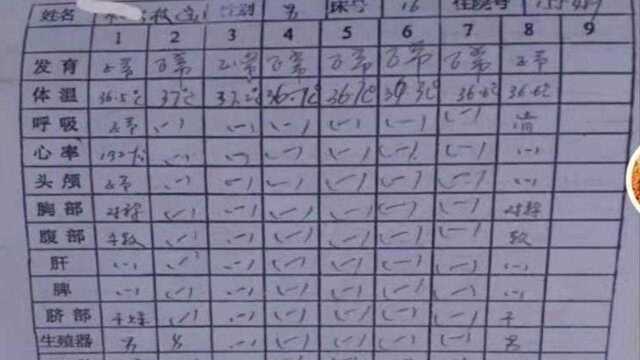 姓名 性别 男 床号 16 住院号
1 2 3 4 5 6 7 8 9
发育 正常 正常 正常 正常 正常 正常 正常 正常
体温 36.5℃ 37℃ 37.2℃ 36.7℃ 36.7℃ 36.6℃ 36.6℃
呼吸 正常 (-) (-) (-) (-) (-) (-) 清
心率 (-) (-) (-) (-) (-) (-) (-)
头颅 正常 (-) (-) (-) (-) (-) (-) (-)
胸部 对称 (-) (-) (-) (-) (-) (-) 对称
腹部 平软 (-) (-) (-) (-) (-) (-) 软
肝 (-) (-) (-) (-) (-) (-) (-) (-)
脾 (-) (-) (-) (-) (-) (-) (-) (-)
脐部 干燥 (-) (-) (-) (-) (-) (-) 干
生殖器 男 男 (-) (-) (-) (-) (-) 男